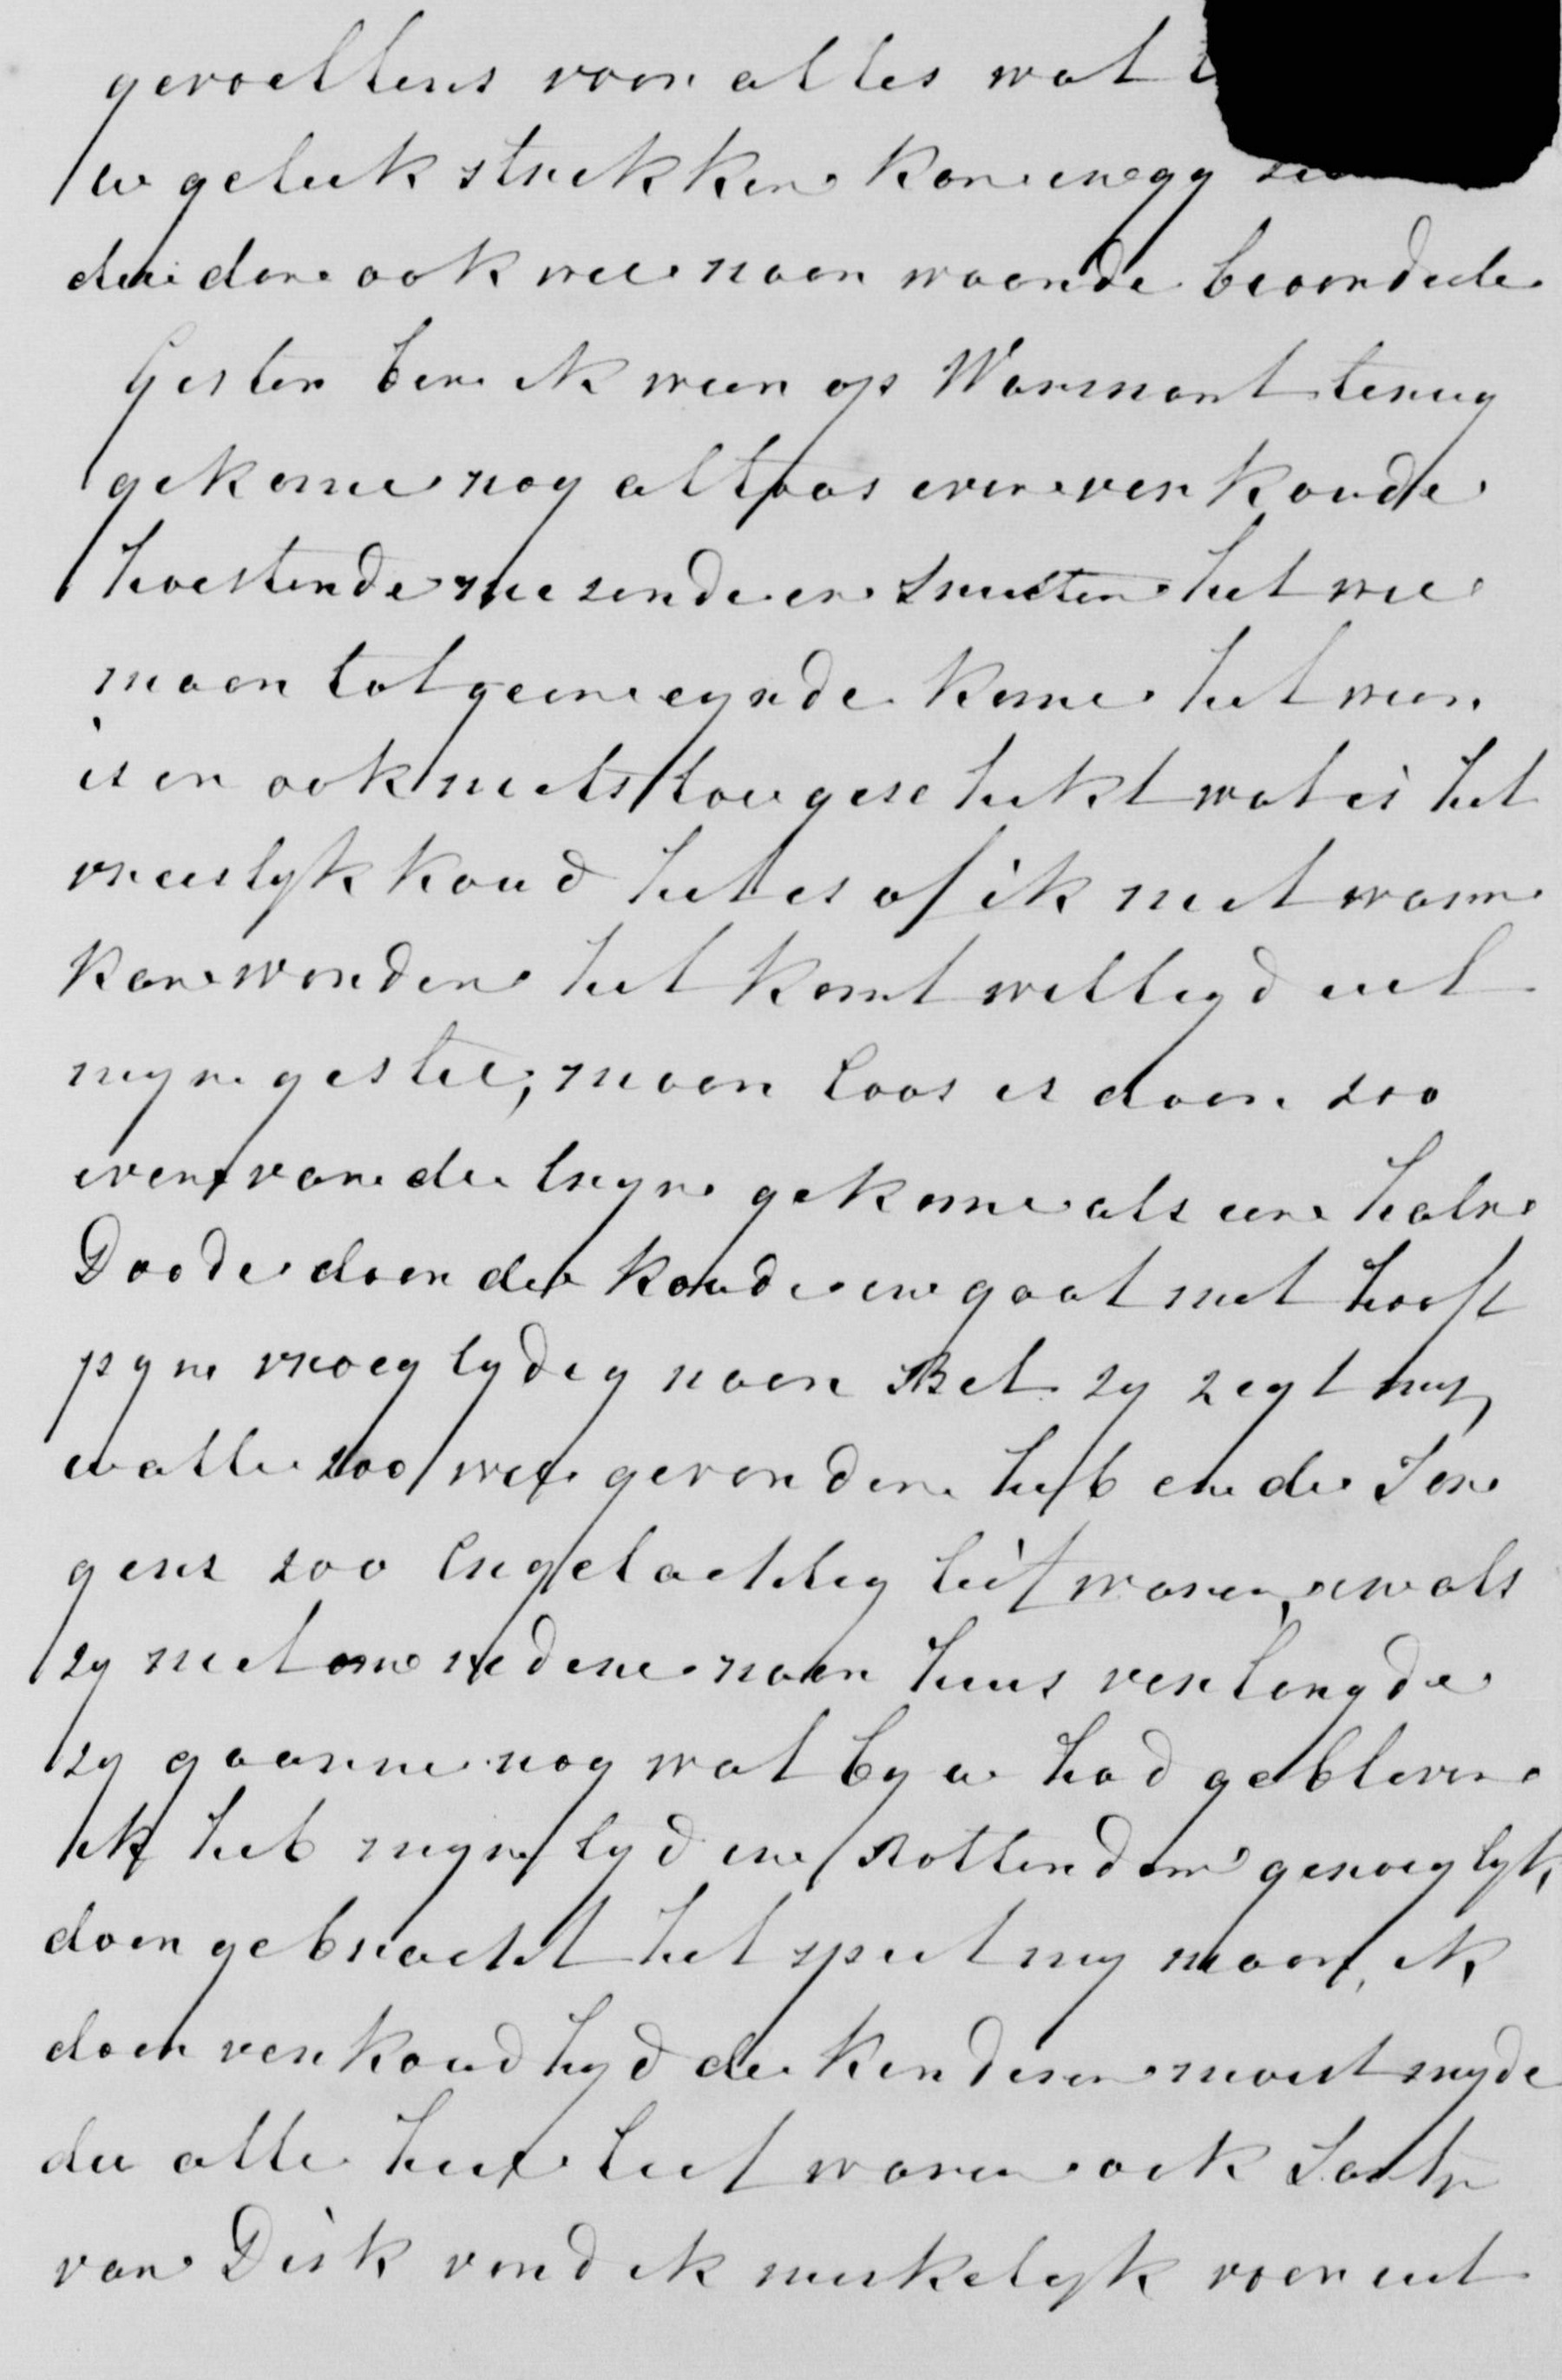 gevoellens voor alles wat t
uw geluk strekken kan en gy
dui dan ook wel naar waarde beoordeele
Gister ben ik weer op Warmont terug
gekome nog altoos even verkoude
hoestende niezende en snuiten het wil
maar tot geen eynde kome het weer
is er ook niets toe geschikt wat is het
vreeslyk koud het is of ik niet warm
kan worden het komt welligd uit
myn gestel, maar Coos is daar zoo
even van de tryn gekome als een halve
Doode door de koude en gaat met hooft
pyn vroegtydig naar Bet zy zegt my
u alle zoo wel gevonden heb en de Jon
gens zoo Engelachtig lief waren, en als
zy niet om redene naar huis verlangde
zy gaarne nog wat by u had gebleven
ik heb myn tyd in Rotterdam genoeglyk
doorgebracht het speet my maar, ik
door verkoudhyd de kinderen moest myde
die alle heel lief waren ook Jootje
van Dirk vond ik merkelyk vooruit